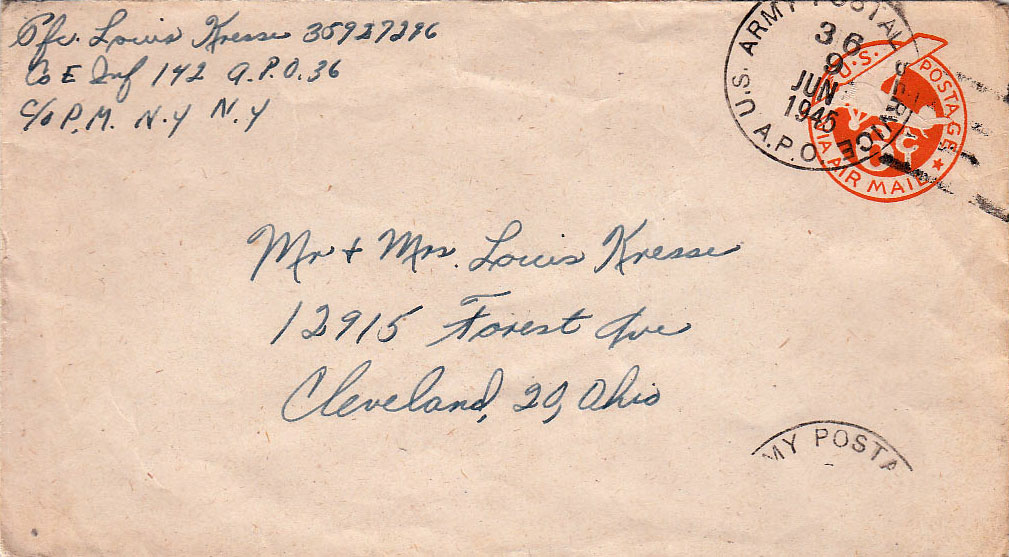 Pfc. Louis Kresse 35927296
Co E Inf 142 A.P.O. 36
C/o P.M. N.Y N.Y
U.S. ARMY POSTAL SERVICE
36
9
JUN
1945
A.P.O.
U.S. POSTAGE
6
VIA AIR MAIL
Mr + Mrs. Louis Kresse
12915 Forest Ave
Cleveland, 20, Ohio
MY POSTA